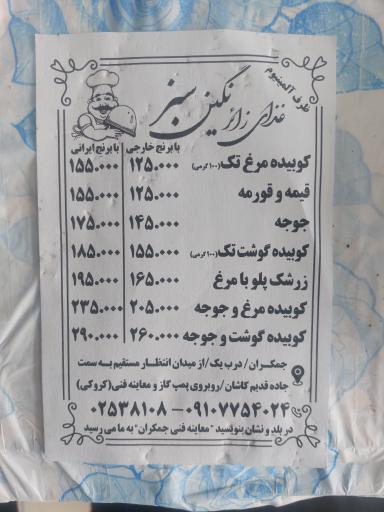 ظرف آلمینیوم
غذای زائر نگین سبز
با برنج خارجی با برنج ایرانی
کوبیده مرغ تک (۱۰۰ گرمی) ۱۲۵.۰۰۰ ۱۵۵.۰۰۰
قیمه و قورمه ۱۲۵.۰۰۰ ۱۵۵.۰۰۰
جوجه ۱۴۵.۰۰۰ ۱۷۵.۰۰۰
کوبیده گوشت تک (۱۰۰ گرمی) ۱۵۵.۰۰۰ ۱۸۵.۰۰۰
زرشک پلو با مرغ ۱۶۵.۰۰۰ ۱۹۵.۰۰۰
کوبیده مرغ و جوجه ۲۰۵.۰۰۰ ۲۳۵.۰۰۰
کوبیده گوشت و جوجه ۲۶۰.۰۰۰ ۲۹۰.۰۰۰
جمکران / درب یک / از میدان انتظار مستقیم به سمت
جاده قدیم کاشان / روبروی پمپ گاز و معاینه فنی (کروکی)
۰۹۱۰۷۷۵۴۰۲۴ – ۰۲۵۳۸۱۰۸
در بلد و نشان بنویسید "معاینه فنی جمکران" به ما می رسید